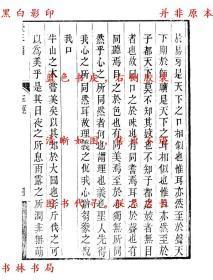 黑白影印 并非原本
於易牙是天下之口相似也惟耳亦然至於聲天
下期於師曠是天下之耳相似也惟目亦然至於
子都天下莫不知其姣也不知子都之姣者無目
者也故曰口之於味也有同耆焉耳之於聲也有
同聽焉目之於色也有同美焉至於心獨無所同
然乎心之所同然者何也謂理也義也聖人先得
我心之所同然耳故理義之悅我心猶芻豢之悅
我口
牛山之木嘗美矣以其郊於大國也斧斤伐之可
以爲美乎是其日夜之所息雨露之所潤非無萌
清晰如图
书林书局